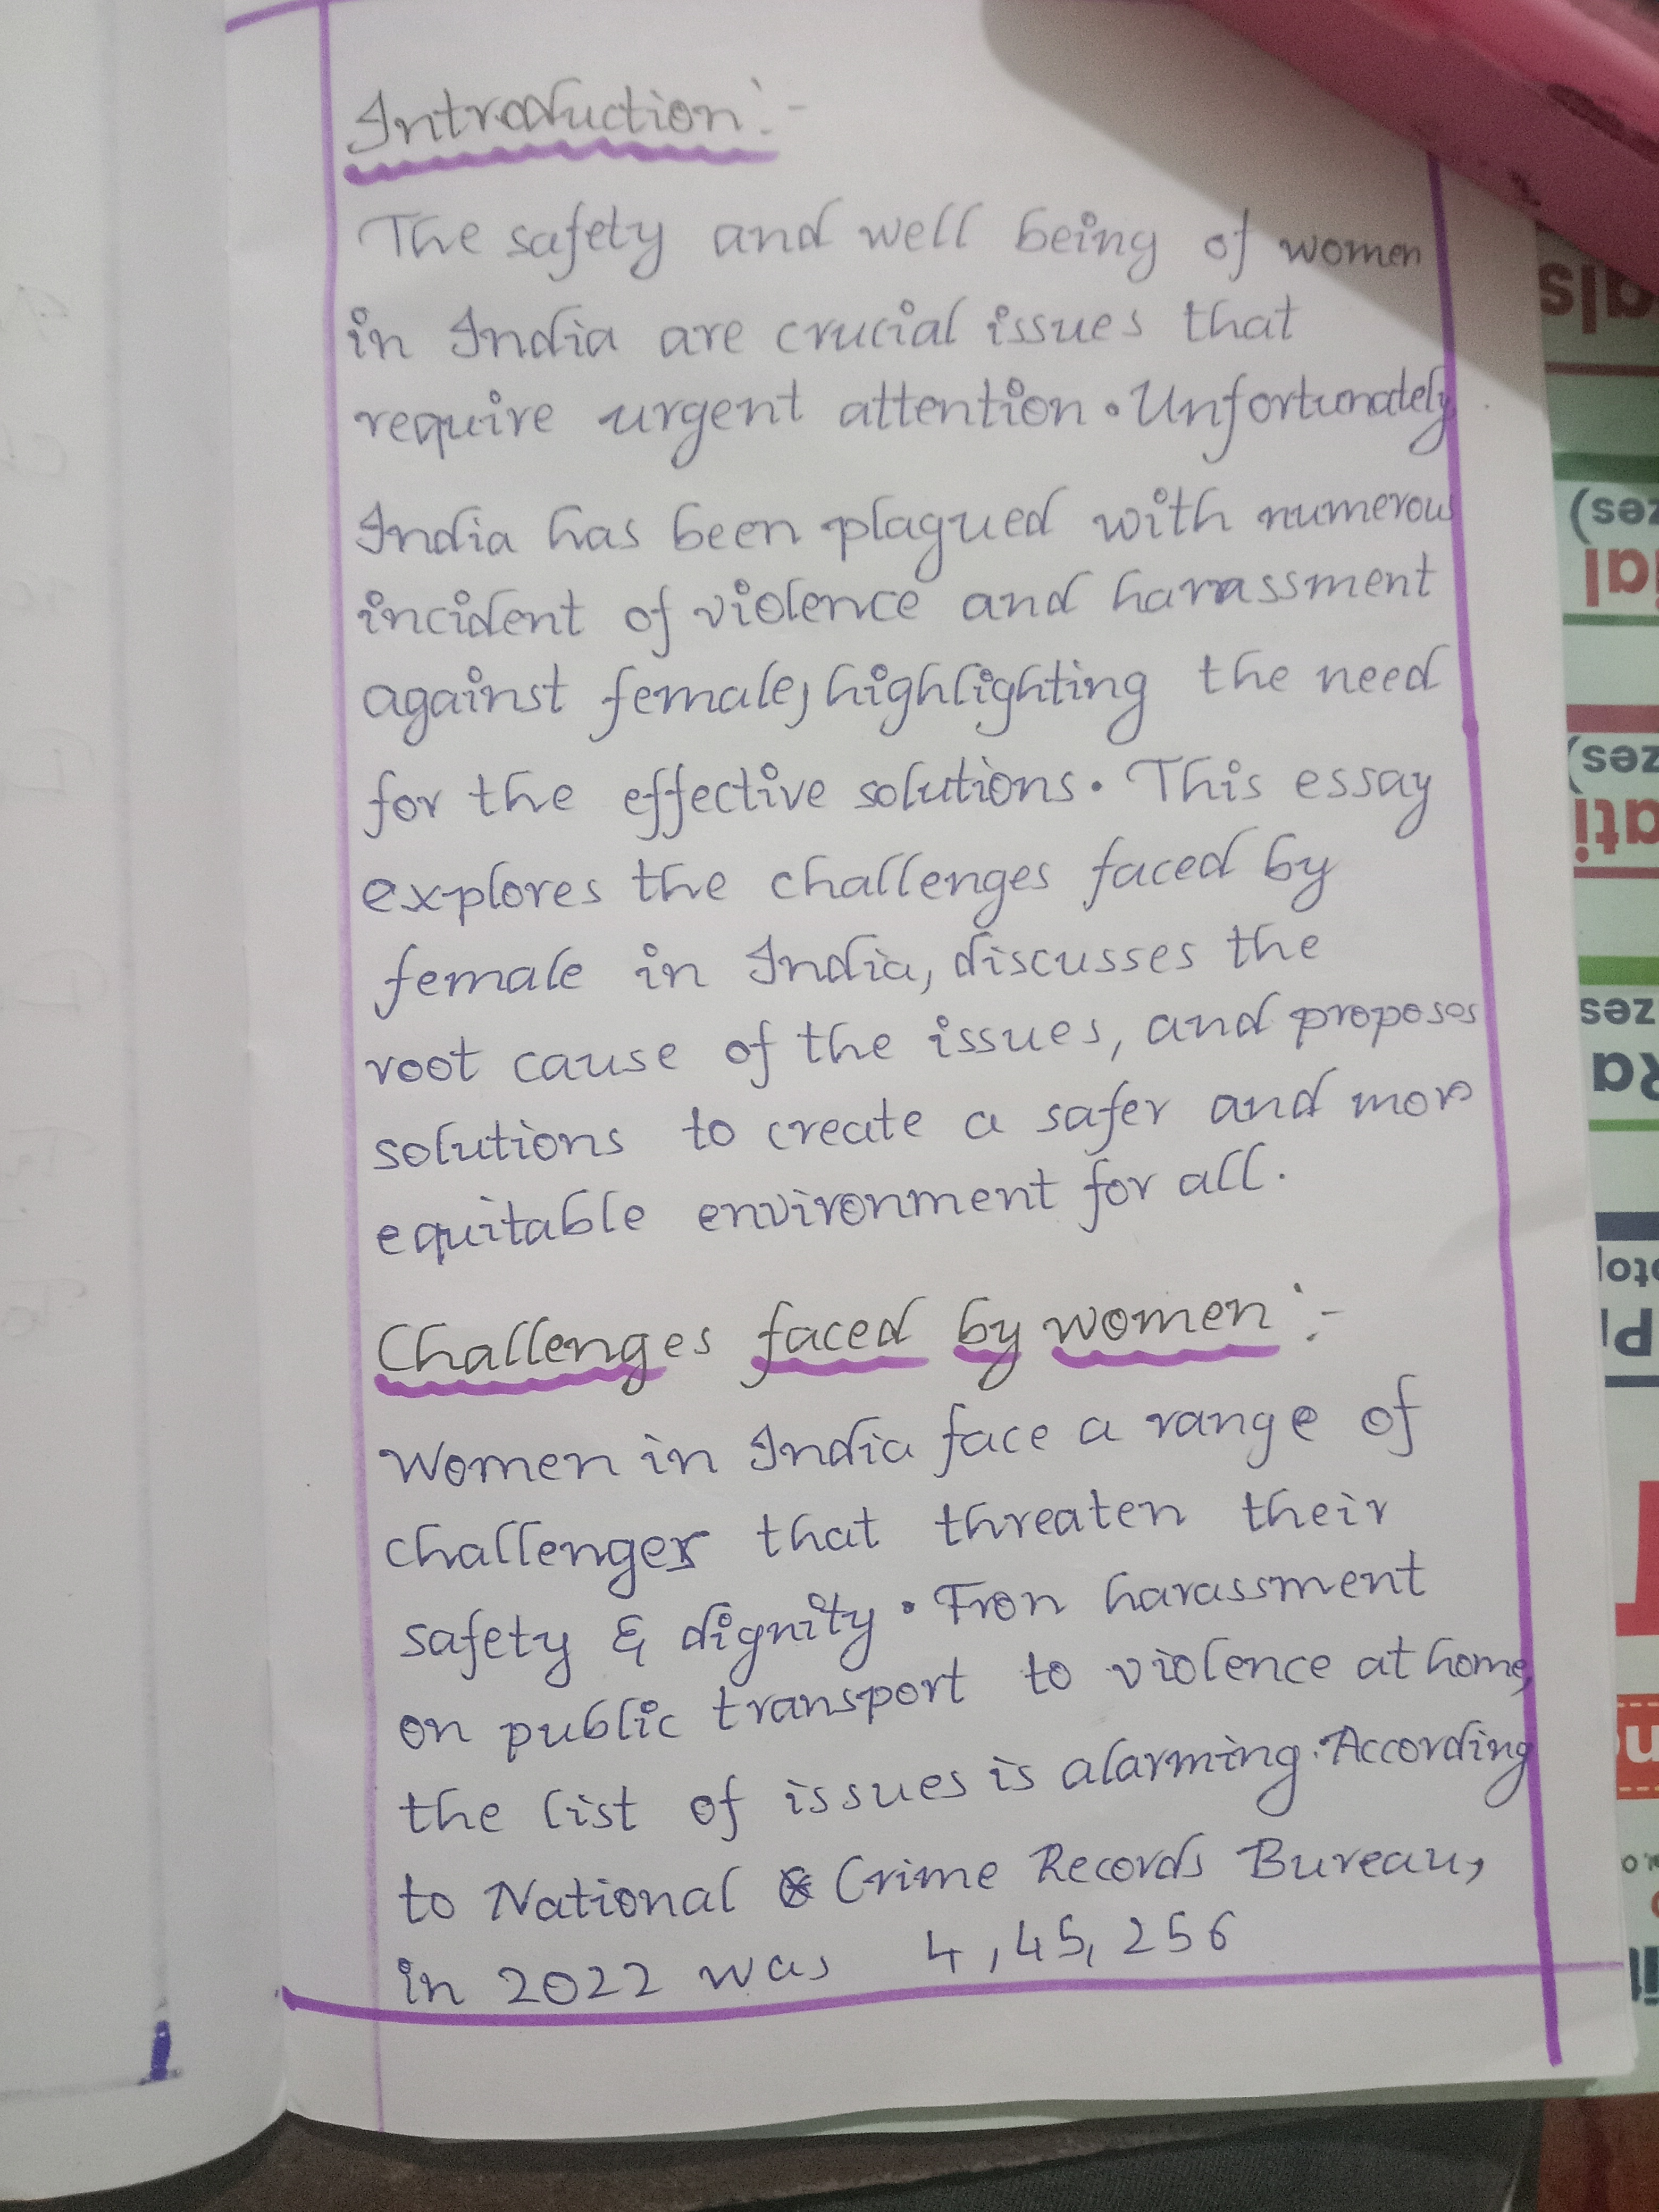 Introduction:-
The safety and well being of women
in India are crucial issues that
require urgent attention. Unfortunately
India has been plagued with numerous
incident of violence and harrassment
against female, highlighting the need
for the effective solutions. This essay
explores the challenges faced by
female in India, discusses the
root cause of the issues, and proposes
solutions to create a safer and more
equitable environment for all.
Challenges faced by women:-
Women in India face a range of
challenges that threaten their
safety & dignity. Fron harassment
on public transport to violence at home,
the list of issues is alarming. According
to National Crime Records Bureau,
in 2022 was 4,45,256